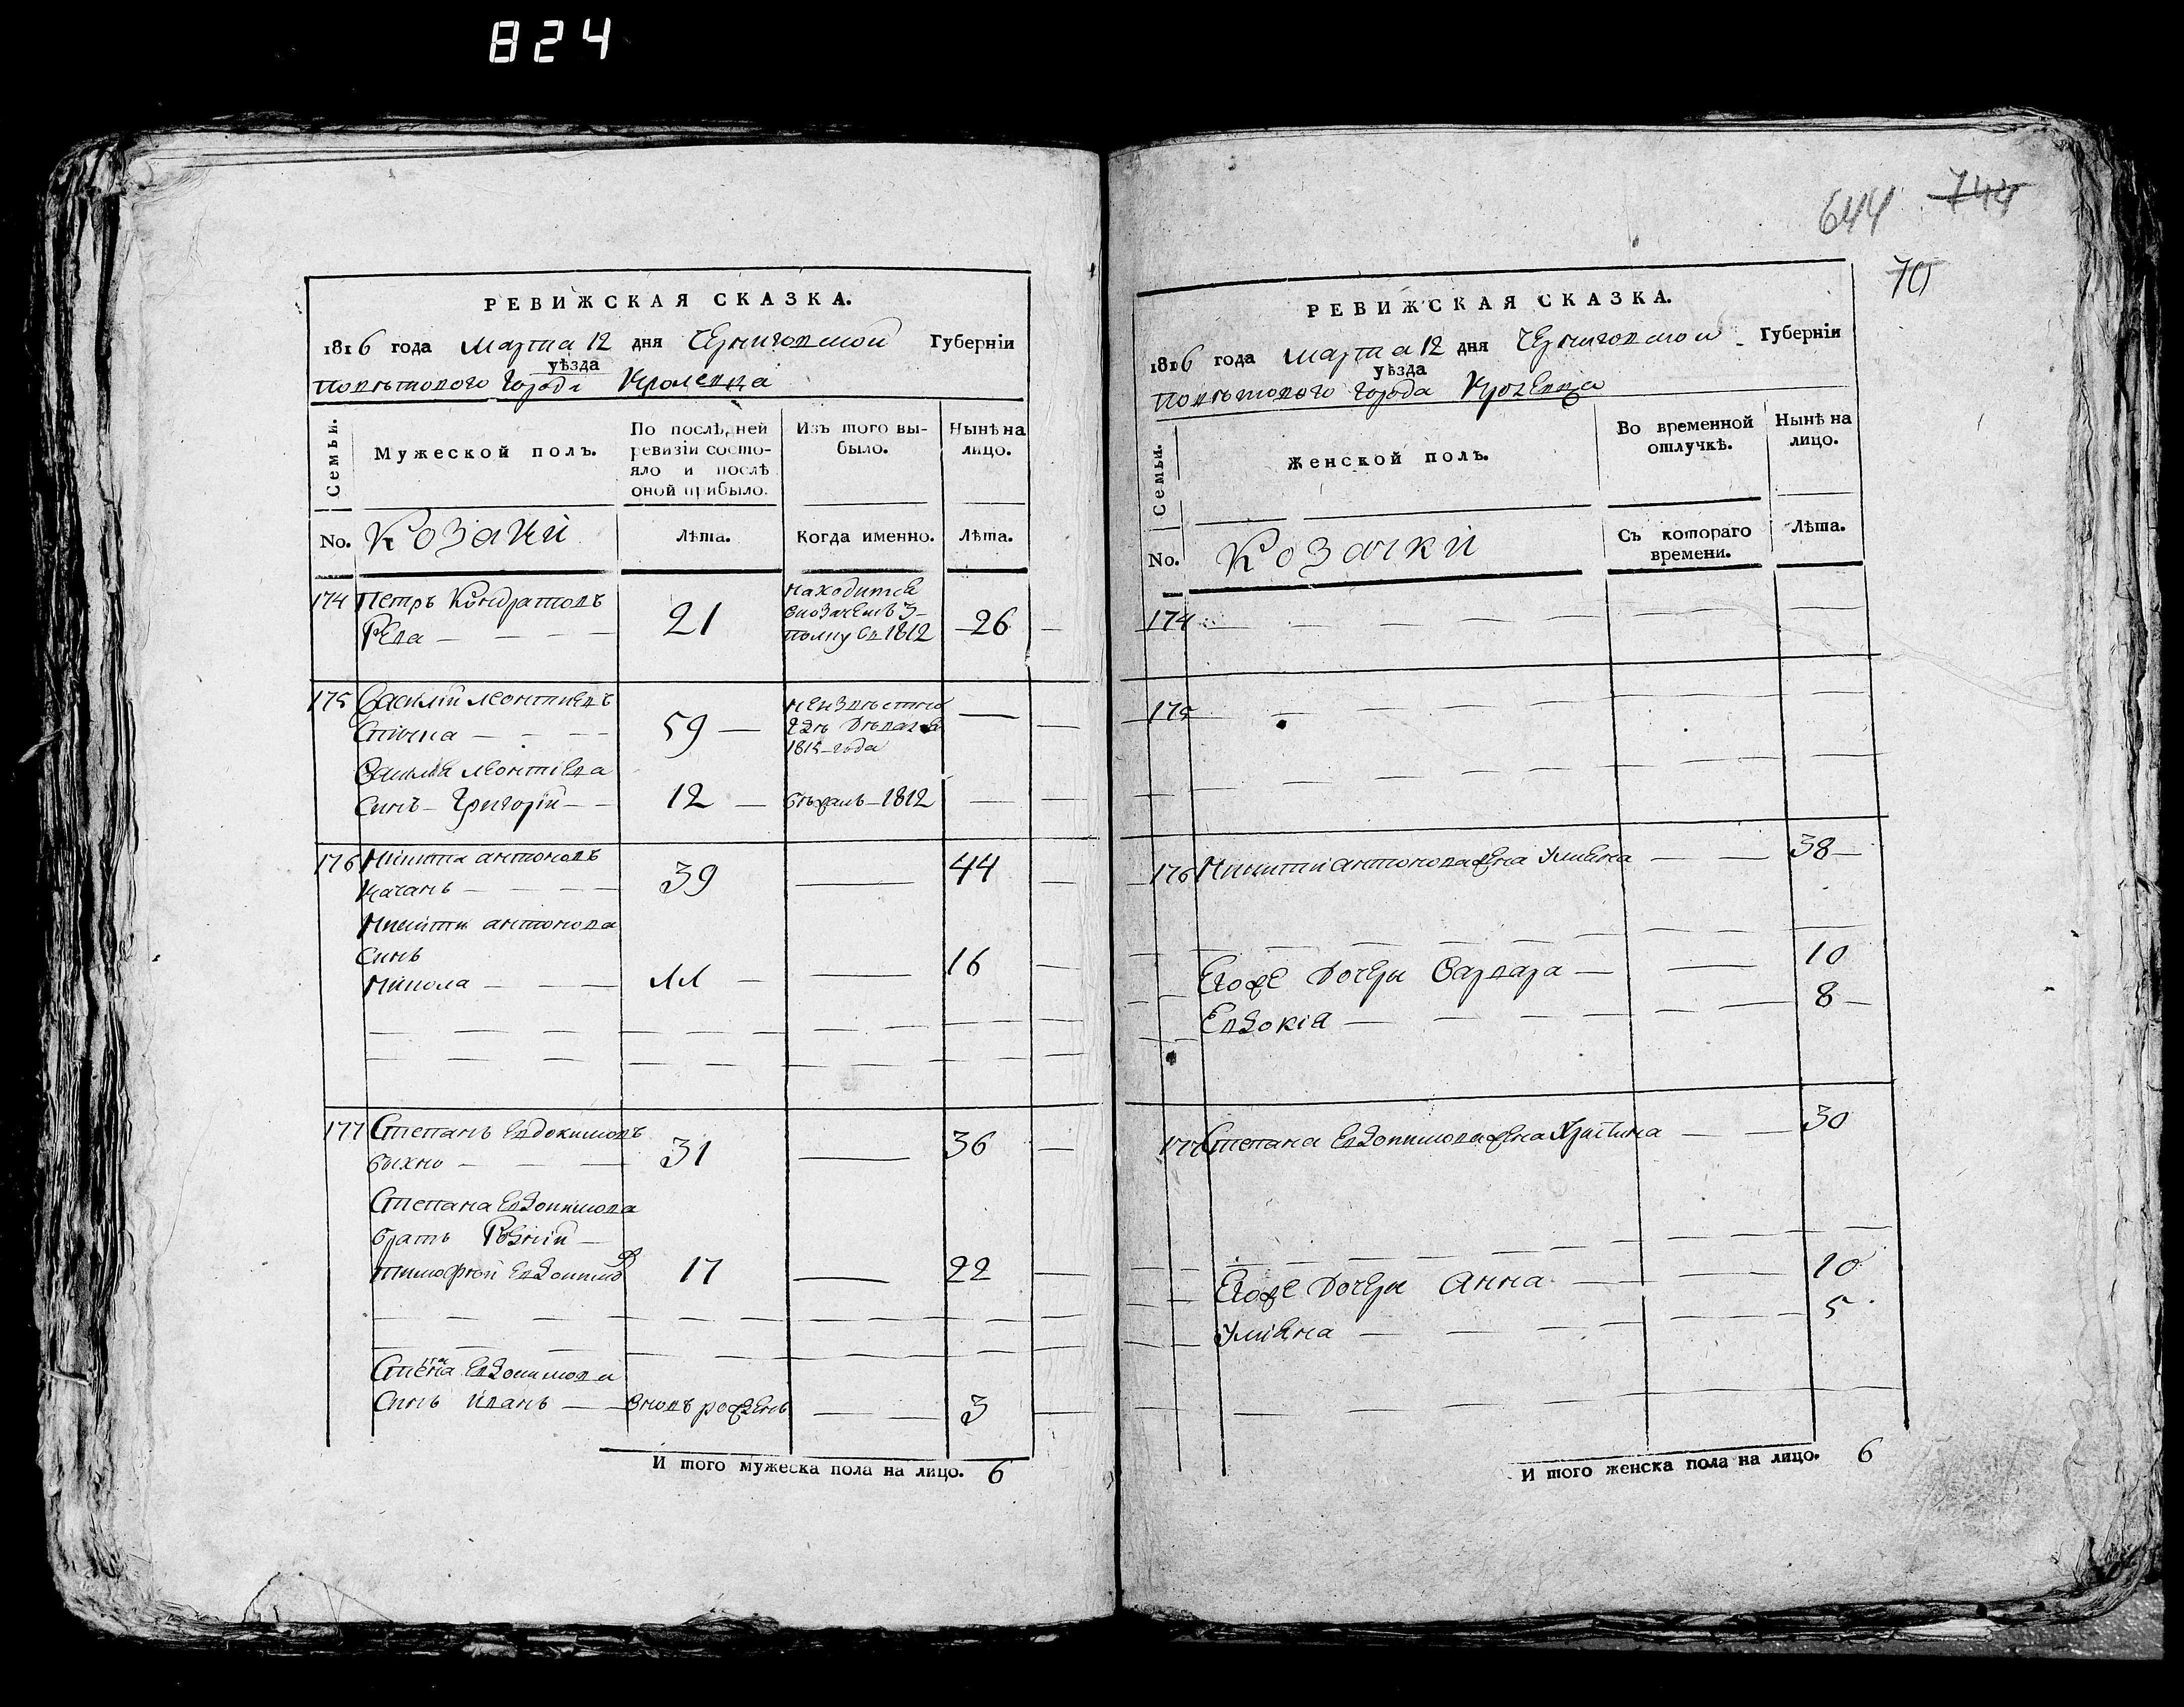 824
644 744
70
РЕВИЖСКАЯ СКАЗКА.
1816 года Марта 12 дня Черниговской Губерніи
уѣзда
Повѣтового города Кролевца
Семьи.
Мужеской полъ.
По послѣдней ревизіи состояло и послѣ оной прибыло.
Изъ того выбыло.
Нынѣ на лицо.
No. Козаки Лѣта. Когда именно. Лѣта.
174 Петръ Кондратовъ
Рева 21 26
находится
в козачемъ 3
полку съ 1812
175 Василий Леонтиевъ
59
неизвѣстно
где девался
1815 года
Василия Леонтиева
синъ Григорий 12 бѣжалъ 1812
176 Никита Антоновъ
Качанъ 39 44
Никити Антонова
синъ
Никола 11 16
177 Степанъ Евдокимовъ
Бихно 31 36
Степана Евдокимова
братъ Родний
Тимофѣй Евдокимовъ 17 22
Степана Евдокимова
синъ Иванъ вновь рожденъ 3
И того мужеска пола на лицо. 6
РЕВИЖСКАЯ СКАЗКА.
1816 года Марта 12 дня Черниговской Губерніи
уѣзда
Повѣтового города Кролевца
Семьи.
Женской полъ.
Во временной отлучкѣ.
Нынѣ на лицо.
No. Козачки Съ котораго времени. Лѣта.
174
175
176 Никити Антонова жена Улияна 38
Егоже дочери Варвара 10
Евдокія 8
177 Степана Евдокимова жена Христина 30
Егоже дочери Анна 10
Улияна 5
И того женска пола на лицо. 6